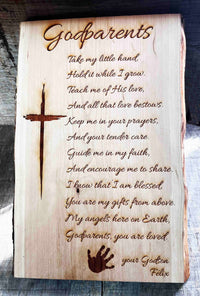 Godparents
Take my little hand,
Hold it while I grow.
Teach me of His love,
And all that love bestows.
Keep me in your prayers,
And your tender care.
Guide me in my faith,
And encourage me to share.
I know that I am blessed,
You are my gifts from above.
My angels here on Earth,
Godparents, you are loved.
your Godson
Felix